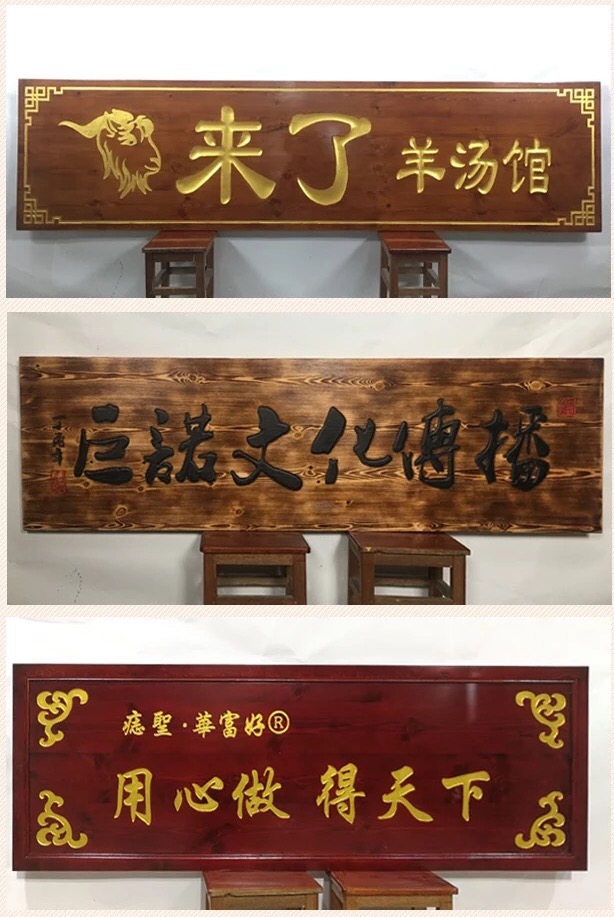 来了 羊汤馆
巨諾文化傳播
痣聖·華富好®
用心做 得天下